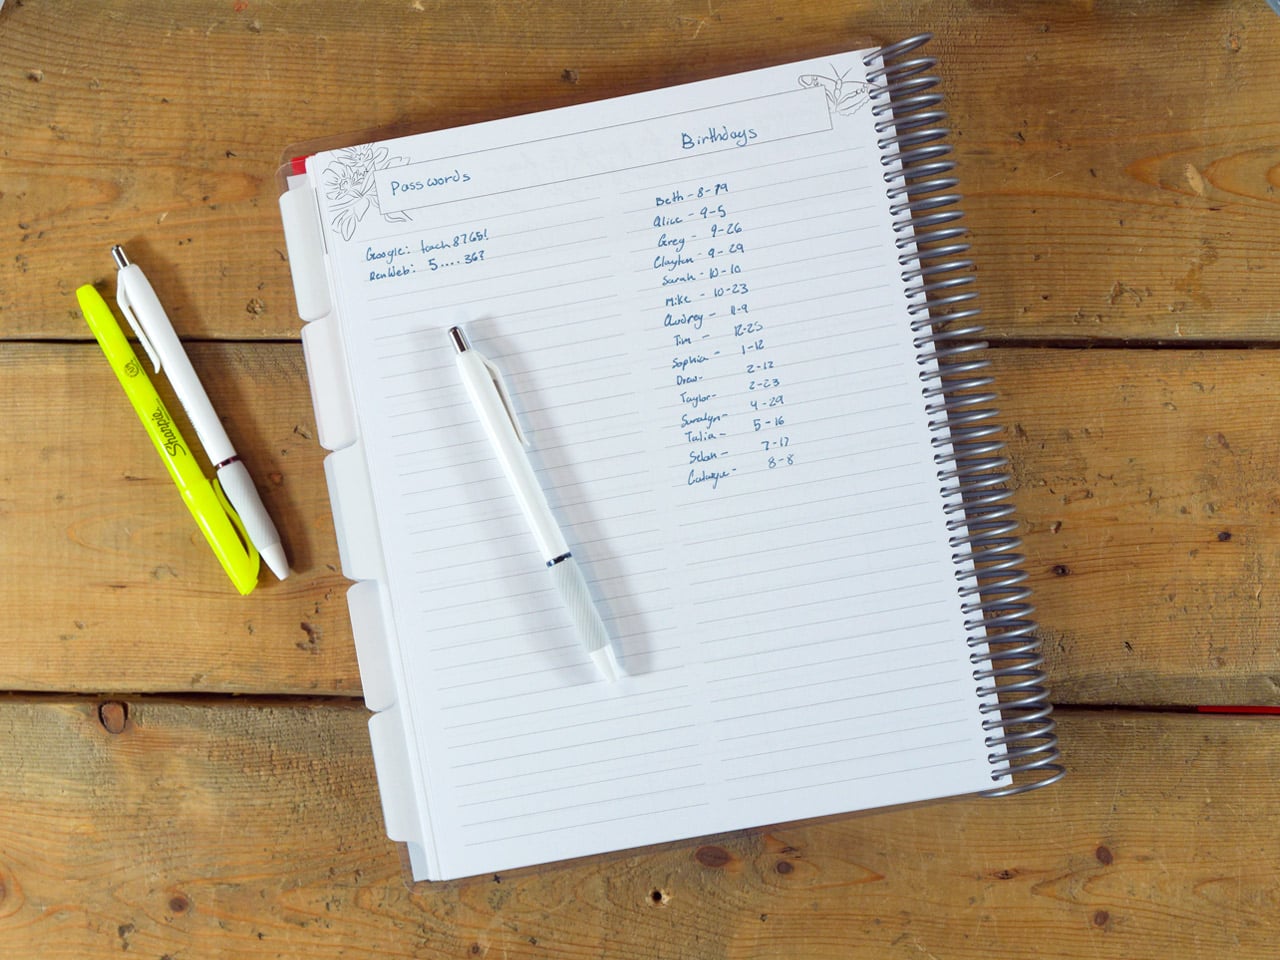 Passwords
Google: teach8765!
RenWeb: 5....36?
Birthdays
Beth - 8-29
Alice - 9-5
Greg - 9-26
Clayton - 9-29
Sarah - 10-10
Mike - 10-23
Audrey - 11-9
Tim - 12-25
Sophia - 1-12
Drew- 2-12
Taylor- 2-23
4-29
Talia - 5-16
7-17
8-8
Sharpie